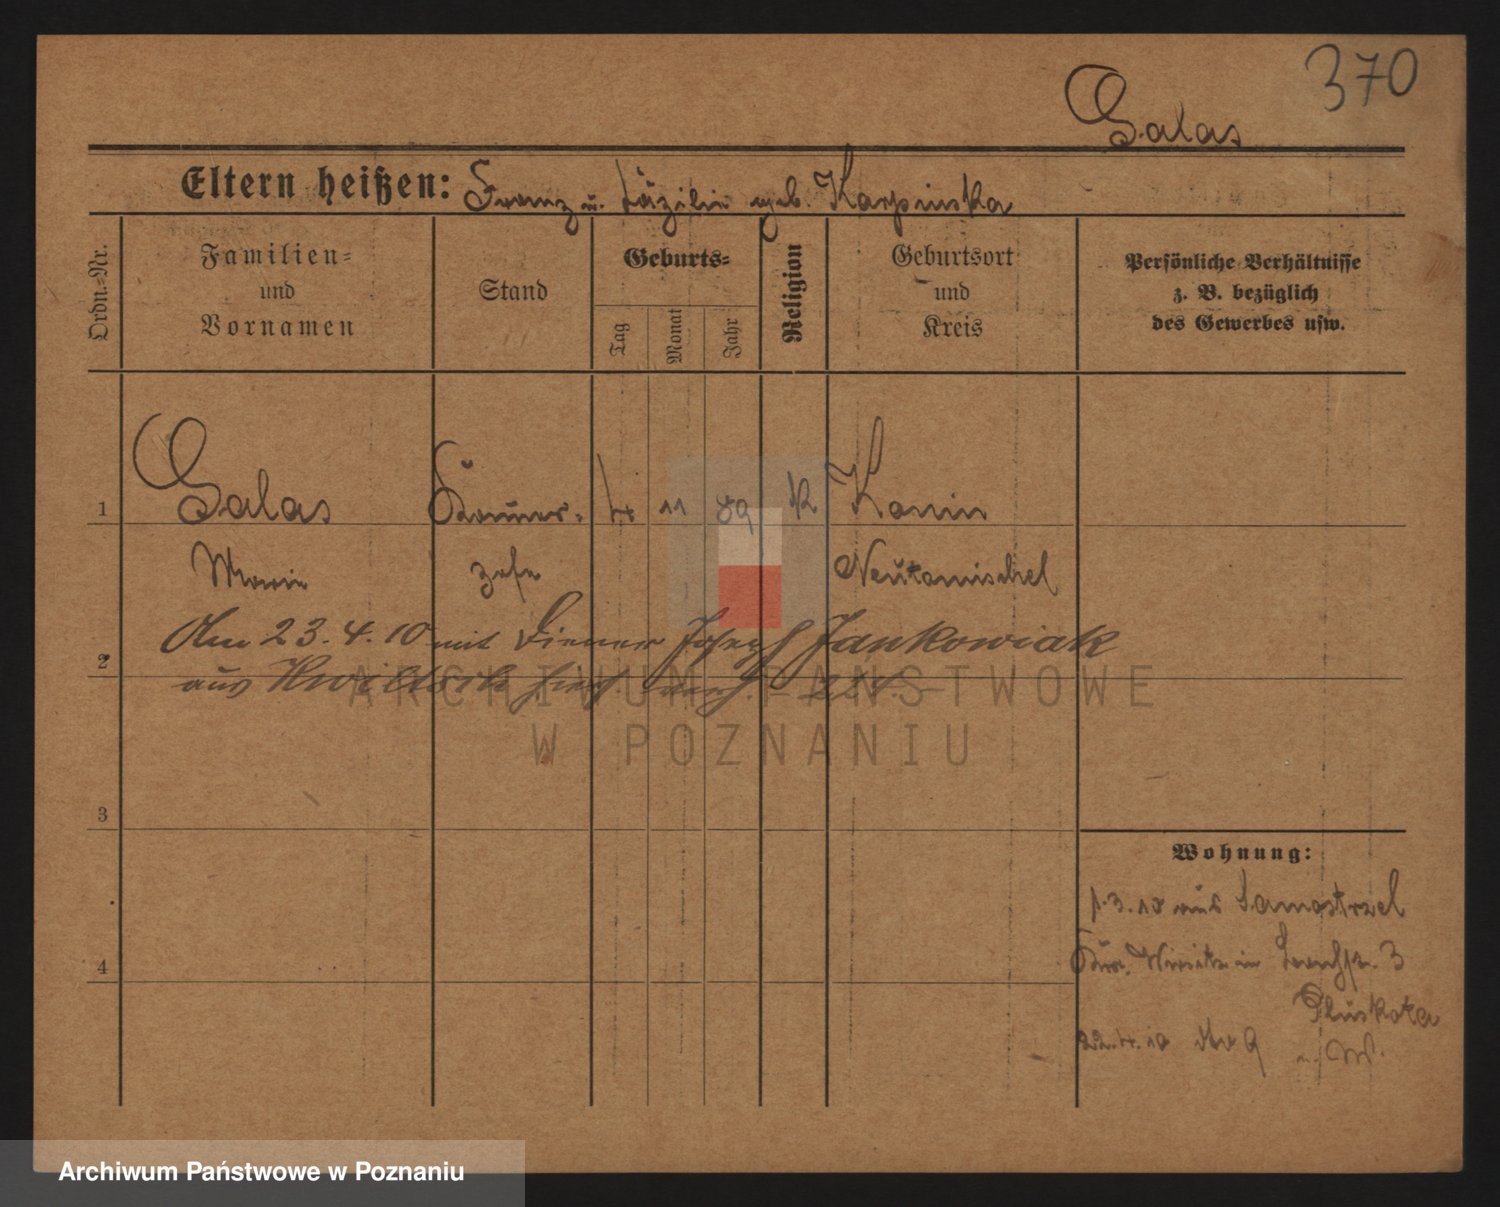 370
Galas
Eltern heißen: Franz u. Cäzilie geb. Karpinska
Ordn.-Nr.
Familien-
und
Vornamen
Stand
Geburts-
Tag
Monat
Jahr
Religion
Geburtsort
und
Kreis
Persönliche Verhältnisse
z. B. bezüglich
des Gewerbes usw.
1 Galas 4 11 89 K Konin
Marie Neutomischel
Am 23.4.10 mit Diener Joseph Jankowiak
2 aus
3
4
Wohnung:
1.3.10 aus Samostrzel
Kr. Wirsitz in 3
22.4.10
ARCHIWUM PAŃSTWOWE
W POZNANIU
Archiwum Państwowe w Poznaniu